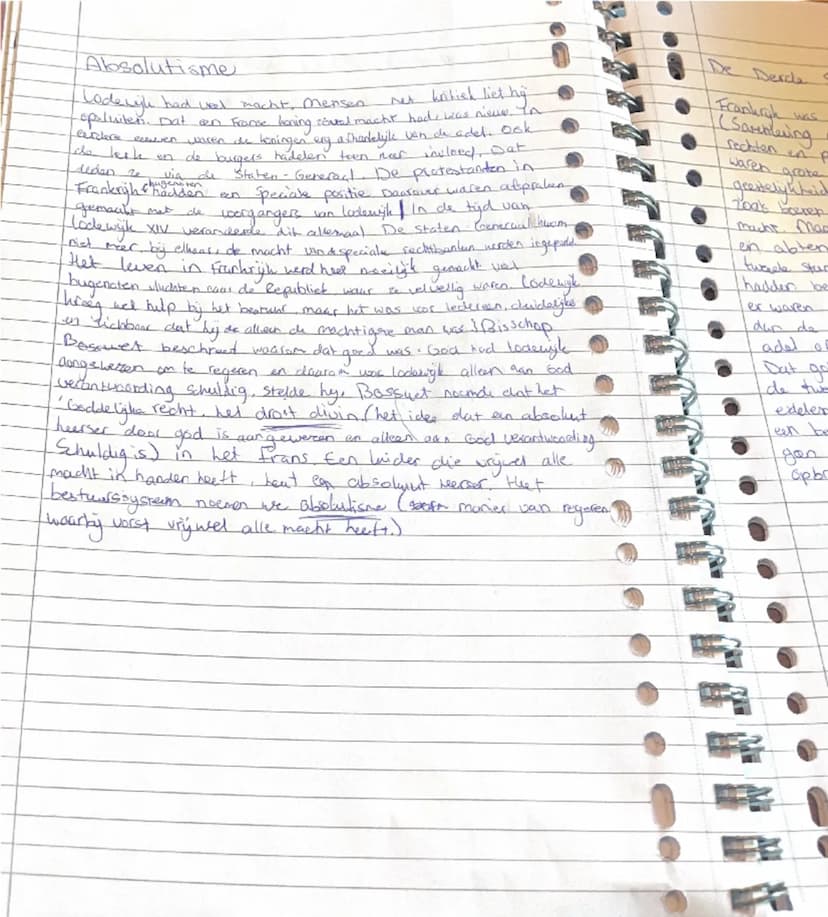 Absolutisme
Lodewijk had veel macht. Mensen met kritiek liet hij
opsluiten. Dat een Franse koning zoveel macht had, was nieuw. In
eerdere eeuwen waren de koningen erg afhankelijk van de adel. Ook
de kerk en de burgers hadden toen meer invloed. Dat
deden ze via de Staten-Generaal. De protestanten in
Frankrijk hugenoten hadden een speciale positie. Daarover waren afspraken
gemaakt met de voorgangers van Lodewijk | In de tijd van
Lodewijk XIV veranderde dit allemaal. De Staten Generaal kwam
niet meer bij elkaar, de macht van speciale rechtbanken werden ingeperkt.
Het leven in Frankrijk werd heel moeilijk gemaakt veel
hugenoten vluchten naar de Republiek waar ze welvellig waren. Lodewijk
kreeg wel hulp bij het bestuur, maar het was voor iedereen, duidelijke
en zichtbaar dat hij de alleen de machtigste man was. | Bisschop
Bossuet beschreef waarom dat goed was. God had Lodewijk
aangewezen om te regeren en daarom was Lodewijk alleen aan God
verantwoording schuldig, stelde hij. Bossuet noemde dat het
'Goddelijke recht, het droit divin (het idee dat een absolut
heerser door god is aangewezen en alleen aan God verantwoording
Schuldig is) in het Frans. Een leider die vrijwel alle
macht in handen heeft, heet een absolut heerser. Het
bestuurssysteem noemen we absolutisme ( manier van regeren
waarbij vorst vrijwel alle macht heeft.)
De Derde
Frankrijk was
(Samenleving
rechten en p
waren grote
geestelijkheid
macht. Maa
tweede star
hadden be
er waren
dan de
adel
Dat go
de tw
edelen
een be
gan
opbr